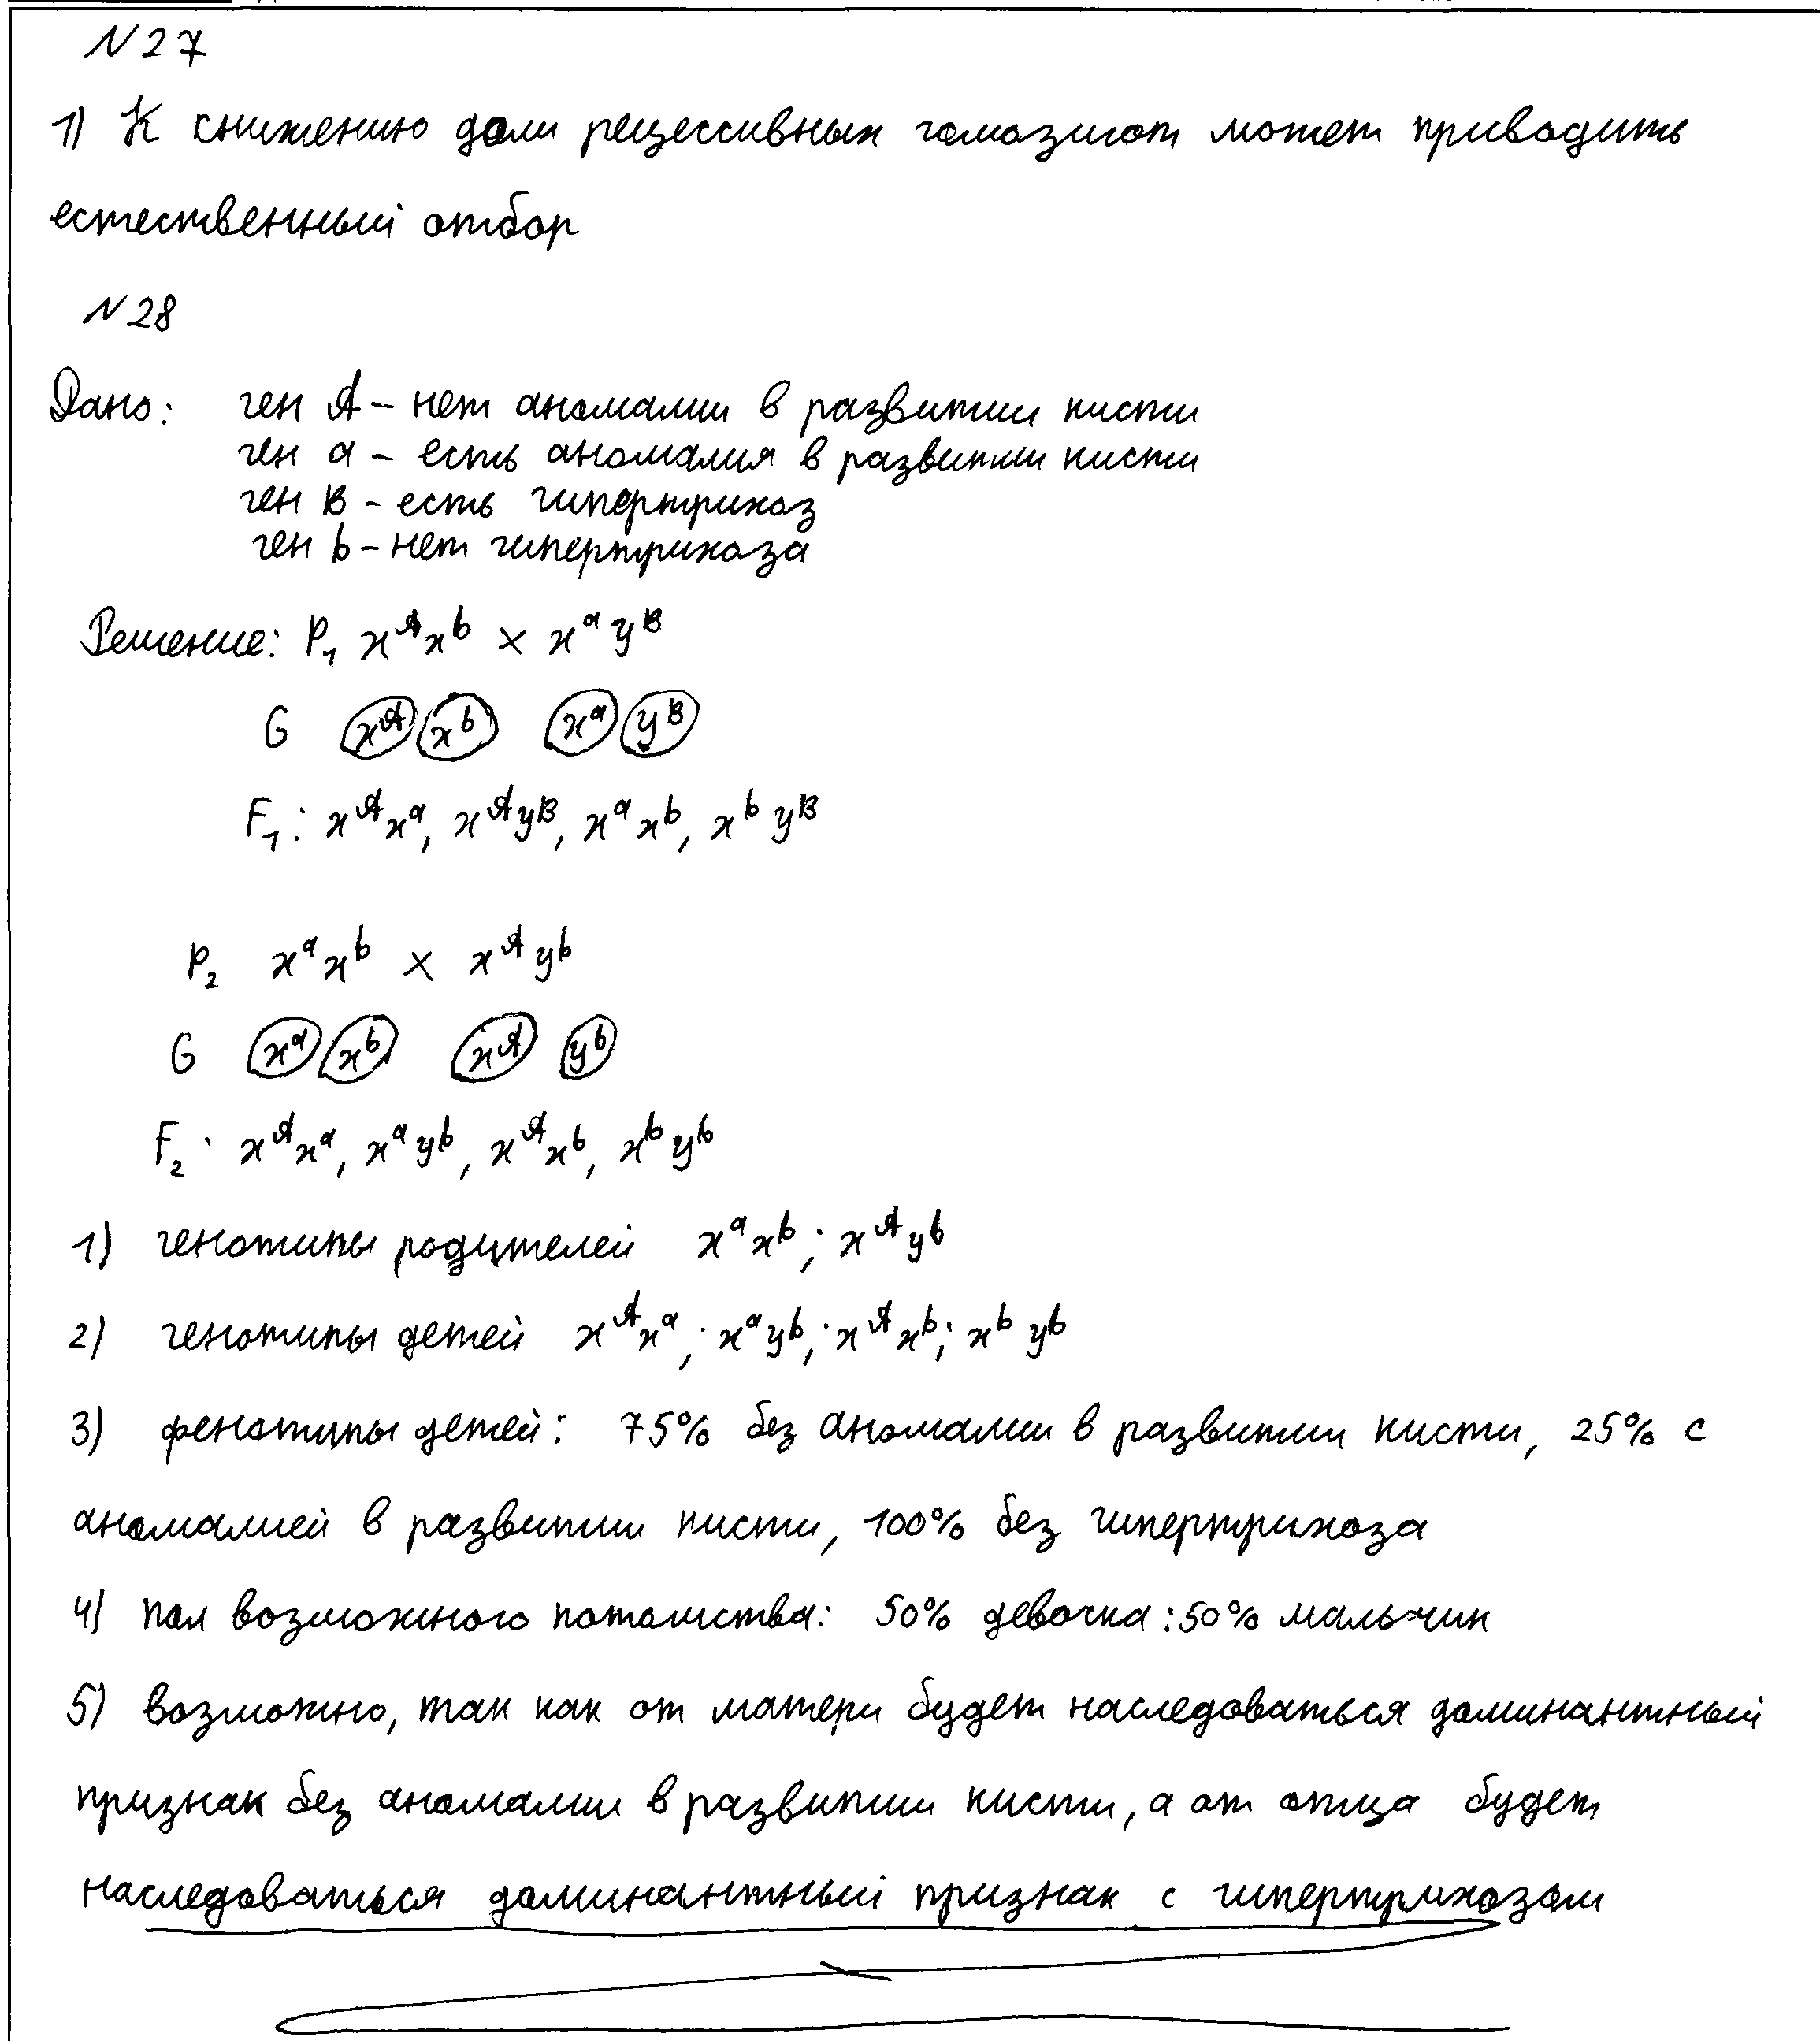 N27
1) К снижению доли рецессивных гомозигот может приводить
естественный отбор
N28
Дано: ген A – нет аномалии в развитии кисти
ген a – есть аномалия в развитии кисти
ген B – есть гипертрихоз
ген b – нет гипертрихоза
Решение: P₁ xᴬxᵇ × xᵃyᴮ
G xᴬ xᵇ xᵃ yᴮ
F₁: xᴬxᵃ, xᴬyᴮ, xᵃxᵇ, xᵇyᴮ
P₂ xᵃxᵇ × xᴬyᵇ
G xᵃ xᵇ xᴬ yᵇ
F₂: xᴬxᵃ, xᵃyᵇ, xᴬxᵇ, xᵇyᵇ
1) генотипы родителей xᵃxᵇ; xᴬyᵇ
2) генотипы детей xᴬxᵃ; xᵃyᵇ; xᴬxᵇ; xᵇyᵇ
3) фенотипы детей: 75% без аномалии в развитии кисти, 25% с
аномалией в развитии кисти, 100% без гипертрихоза
4) пол возможного потомства: 50% девочка : 50% мальчик
5) возможно, так как от матери будет наследоваться доминантный
признак без аномалии в развитии кисти, а от отца будет
наследоваться доминантный признак с гипертрихозом